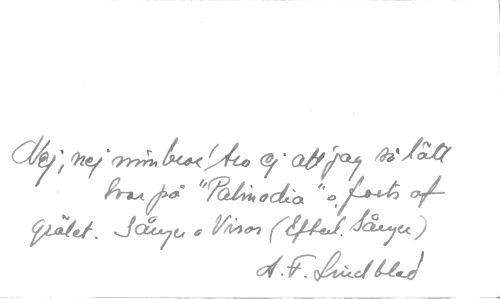 Nej, nej min bror! tro ej att jag så lätt
Svar på "Palinodia" o. forts af
grälet. Sånger o Visor (Efterl. Sånger)
A. F. Lindblad